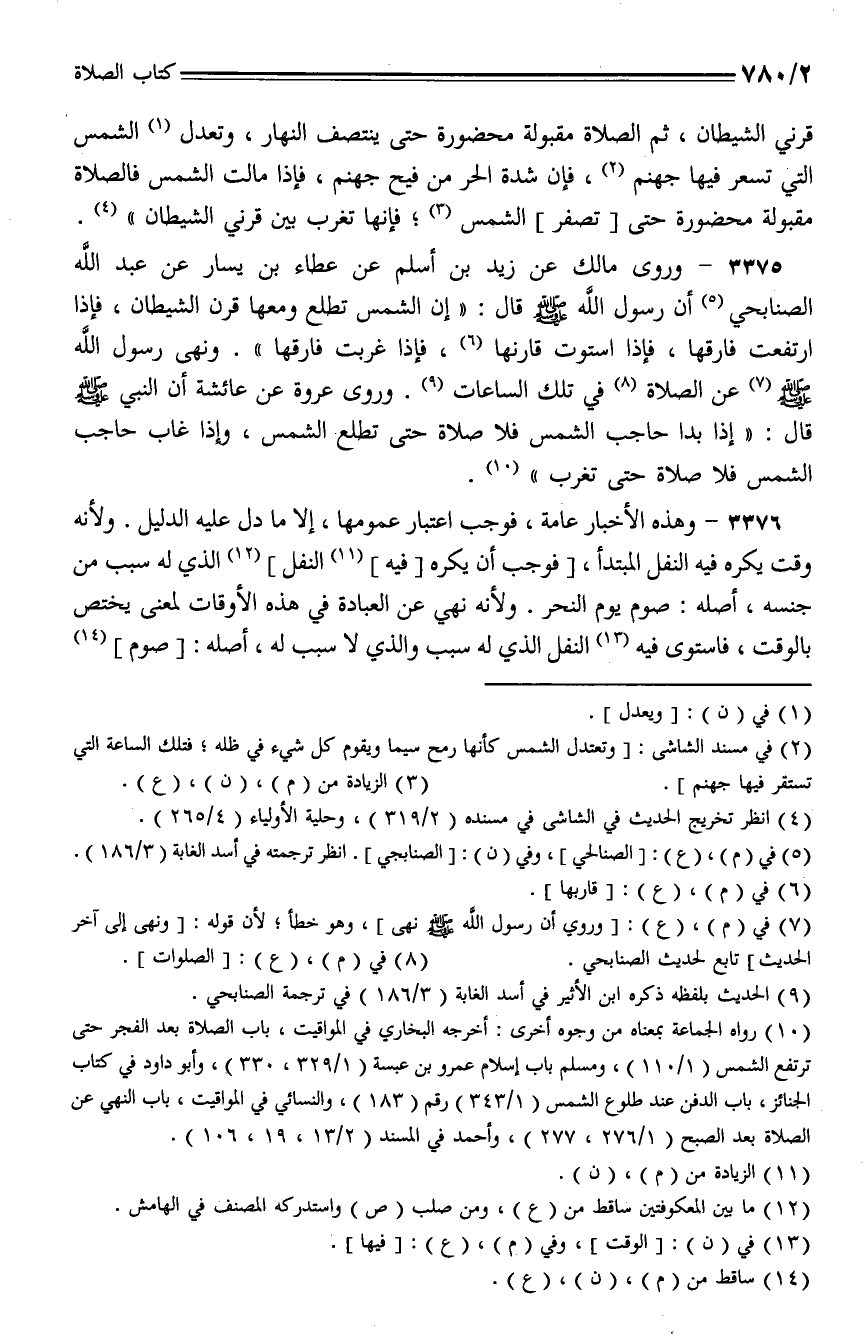 ٧٨٠/٢ كتاب الصلاة
قرني الشيطان ، ثم الصلاة مقبولة محضورة حتى ينتصف النهار ، وتعدل (١) الشمس
التي تسعر فيها جهنم (٢) ، فإن شدة الحر من فيح جهنم ، فإذا مالت الشمس فالصلاة
مقبولة محضورة حتى [ تصفر ] الشمس (٣) ؛ فإنها تغرب بين قرني الشيطان » (٤) .
٣٣٧٥ – وروى مالك عن زيد بن أسلم عن عطاء بن يسار عن عبد اللَّه
الصنابحي (٥) أن رسول اللَّه ﷺ قال : « إن الشمس تطلع ومعها قرن الشيطان ، فإذا
ارتفعت فارقها ، فإذا استوت قارنها (٦) ، فإذا غربت فارقها » . ونهى رسول اللَّه
ﷺ (٧) عن الصلاة (٨) في تلك الساعات (٩) . وروى عروة عن عائشة أن النبي ﷺ
قال : « إذا بدا حاجب الشمس فلا صلاة حتى تطلع الشمس ، وإذا غاب حاجب
الشمس فلا صلاة حتى تغرب » (١٠) .
٣٣٧٦ – وهذه الأخبار عامة ، فوجب اعتبار عمومها ، إلا ما دل عليه الدليل . ولأنه
وقت يكره فيه النفل المبتدأ ، [ فوجب أن يكره [ فيه ] (١١) النفل ] (١٢) الذي له سبب من
جنسه ، أصله : صوم يوم النحر . ولأنه نهي عن العبادة في هذه الأوقات لمعنى يختص
بالوقت ، فاستوى فيه (١٣) النفل الذي له سبب والذي لا سبب له ، أصله : [ صوم ] (١٤)
(١) في ( ن ) : [ ويعدل ] .
(٢) في مسند الشاشى : [ وتعتدل الشمس كأنها رمح سيما ويقوم كل شيء في ظله ؛ فتلك الساعة التي
تستقر فيها جهنم ] . (٣) الزيادة من ( م ) ، ( ن ) ، ( ع ) .
(٤) انظر تخريج الحديث في الشاشى في مسنده ( ٣١٩/٢ ) ، وحلية الأولياء ( ٢٦٥/٤ ) .
(٥) في ( م ) ، ( ع ) : [ الصنالحي ] ، وفي ( ن ) : [ الصنابجي ] . انظر ترجمته في أسد الغابة ( ١٨٦/٣ ) .
(٦) في ( م ) ، ( ع ) : [ قاربها ] .
(٧) في ( م ) ، ( ع ) : [ وروي أن رسول اللَّه ﷺ نهى ] ، وهو خطأ ؛ لأن قوله : [ ونهى إلى آخر
الحديث ] تابع لحديث الصنابحي . (٨) في ( م ) ، ( ع ) : [ الصلوات ] .
(٩) الحديث بلفظه ذكره ابن الأثير في أسد الغابة ( ١٨٦/٣ ) في ترجمة الصنابحي .
(١٠) رواه الجماعة بمعناه من وجوه أخرى : أخرجه البخاري في المواقيت ، باب الصلاة بعد الفجر حتى
ترتفع الشمس ( ١١٠/١ ) ، ومسلم باب إسلام عمرو بن عبسة ( ٣٢٩/١ ، ٣٣٠ ) ، وأبو داود في كتاب
الجنائز ، باب الدفن عند طلوع الشمس ( ٣٤٣/١ ) رقم ( ١٨٣ ) ، والنسائي في المواقيت ، باب النهي عن
الصلاة بعد الصبح ( ٢٧٦/١ ، ٢٧٧ ) ، وأحمد في المسند ( ١٣/٢ ، ١٩ ، ١٠٦ ) .
(١١) الزيادة من ( م ) ، ( ن ) .
(١٢) ما بين المعكوفتين ساقط من ( ع ) ، ومن صلب ( ص ) واستدركه المصنف في الهامش .
(١٣) في ( ن ) : [ الوقت ] ، وفي ( م ) ، ( ع ) : [ فيها ] .
(١٤) ساقط من ( م ) ، ( ن ) ، ( ع ) .